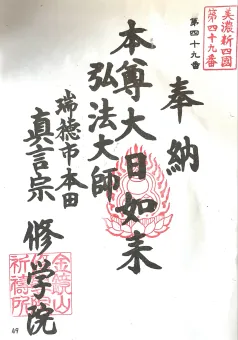 美濃新四國
第四十九番
第四十九番
奉納
本尊大日如来
弘法大師
瑞穂市本田
真言宗 修学院
金鏡山
修学院
祈禱所
49